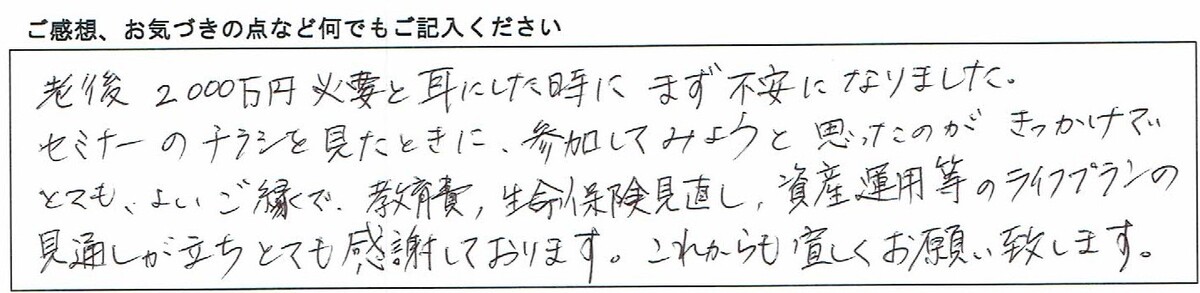 ご感想、お気づきの点など何でもご記入ください
老後 2000万円 必要と耳にした時に まず不安になりました。
セミナーのチラシを見たときに、参加してみようと思ったのが きっかけで
とても、よいご縁で、教育費, 生命保険見直し, 資産運用等のライフプランの
見通しが立ちとても感謝しております。これからも宜しくお願い致します。